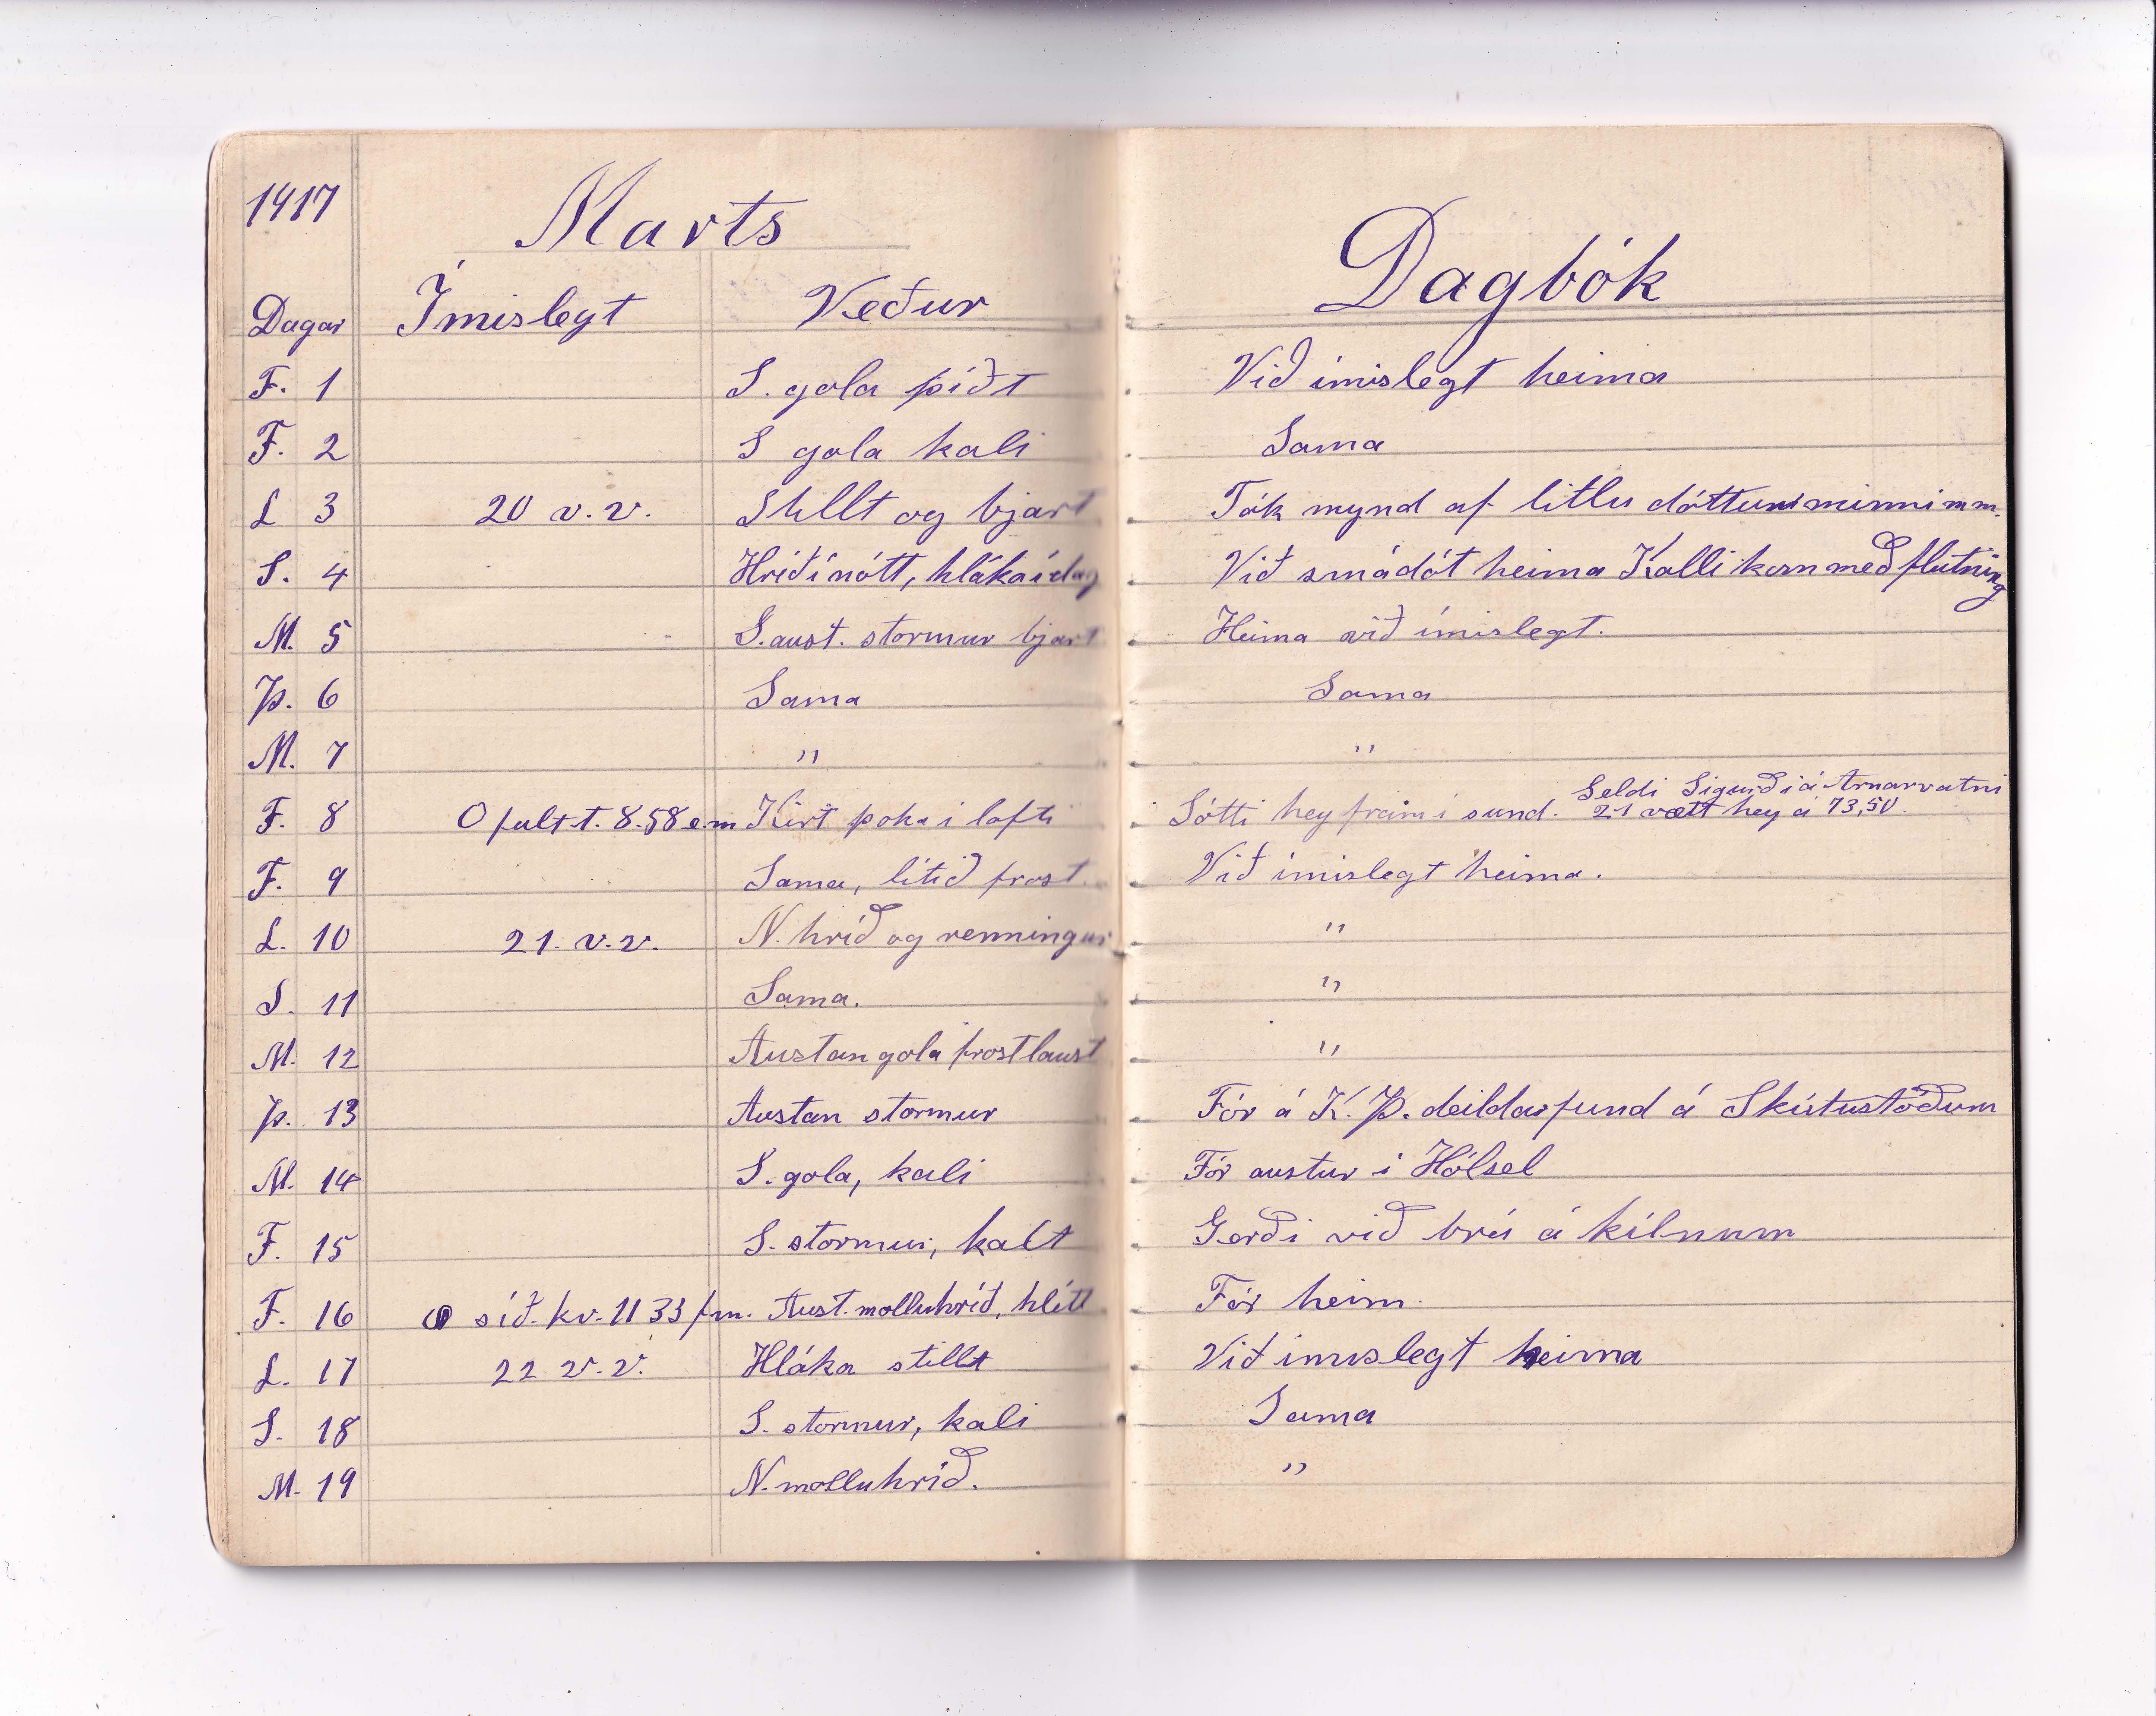 1917
Marts
Dagbók
Dagar Ímislegt Veður
F. 1 S. gola þíðt Við ímislegt heima
F. 2 S gola kali Sama
L 3 20 v.v. Stillt og bjart Tók mynd af litlu dóttur minni
S. 4 Hríð í nótt, hláka í dag Við smádót heima Kalli kom með flutning
M. 5 S.aust. stormur bjart Heima við ímislegt.
Þ. 6 Sama Sama
M. 7 " "
Seldi Sigurði á Arnarvatni
F. 8 O fult t. 8.58 e.m Kirt þoka í lofti Sótti hey fram í sund. 21 vætt hey á 73,50.
F. 9 Sama, lítið frost. Við ímislegt heima.
L. 10 21. v.v. N. hríð og renningur "
S. 11 Sama. "
M. 12 Austan gola frostlaust "
Þ. 13 Austan stormur Fór á K. Þ. deildarfund á Skútustöðum
M. 14 S. gola, kali Fór austur í Hólsel
F. 15 S. stormur, kalt Gerði við brú á kílnum
F. 16 síð. kv. 11 33 f.m. Aust. molluhríð, hlítt Fór heim.
L. 17 22 v.v. Hláka stillt Við ímislegt heima
S. 18 S. stormur, kali Sama
M. 19 N. molluhríð. "